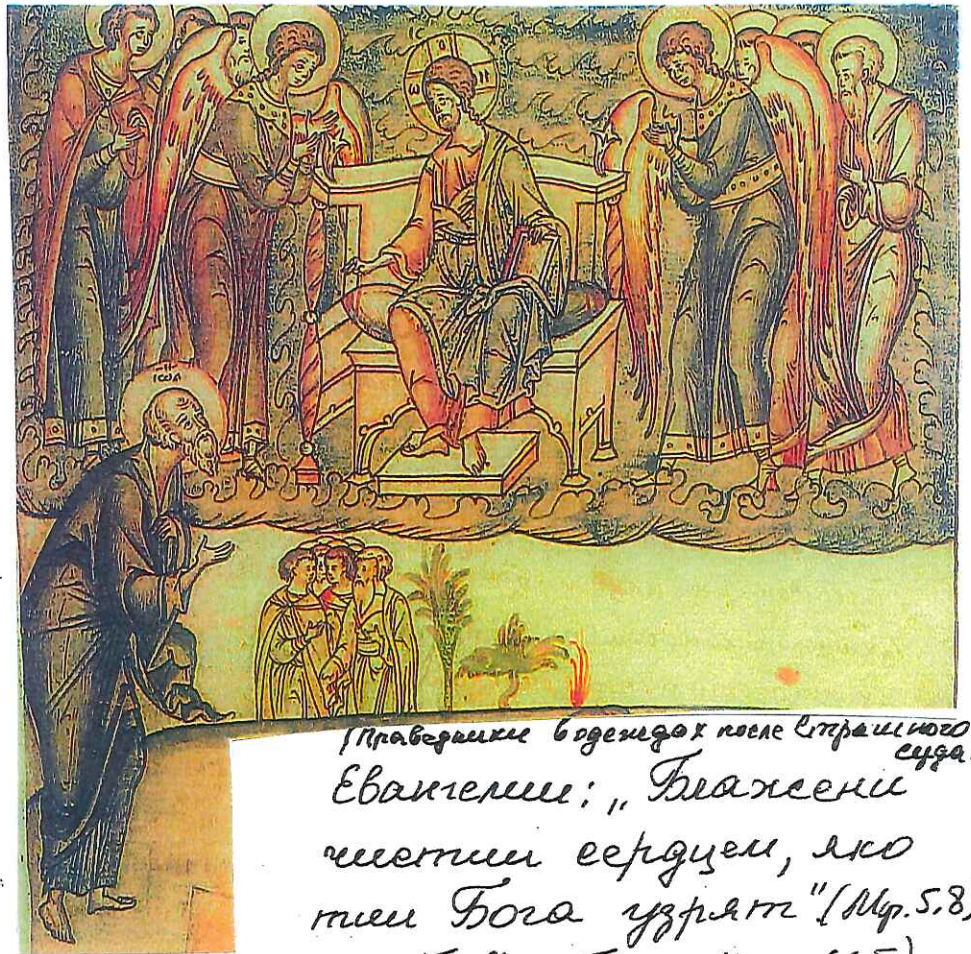 ІѠА
(Праведники в одеждах после Страшного
суда.
Евангелии: „Блажени
чистии сердцем, яко
тии Бога узрят" (Мф. 5.8,